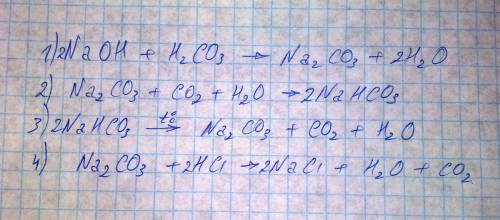 1) 2NaOH + H₂CO₃ → Na₂CO₃ + 2H₂O
2) Na₂CO₃ + CO₂ + H₂O → 2NaHCO₃
3) 2NaHCO₃ →t° Na₂CO₃ + CO₂ + H₂O
4) Na₂CO₃ + 2HCl → 2NaCl + H₂O + CO₂